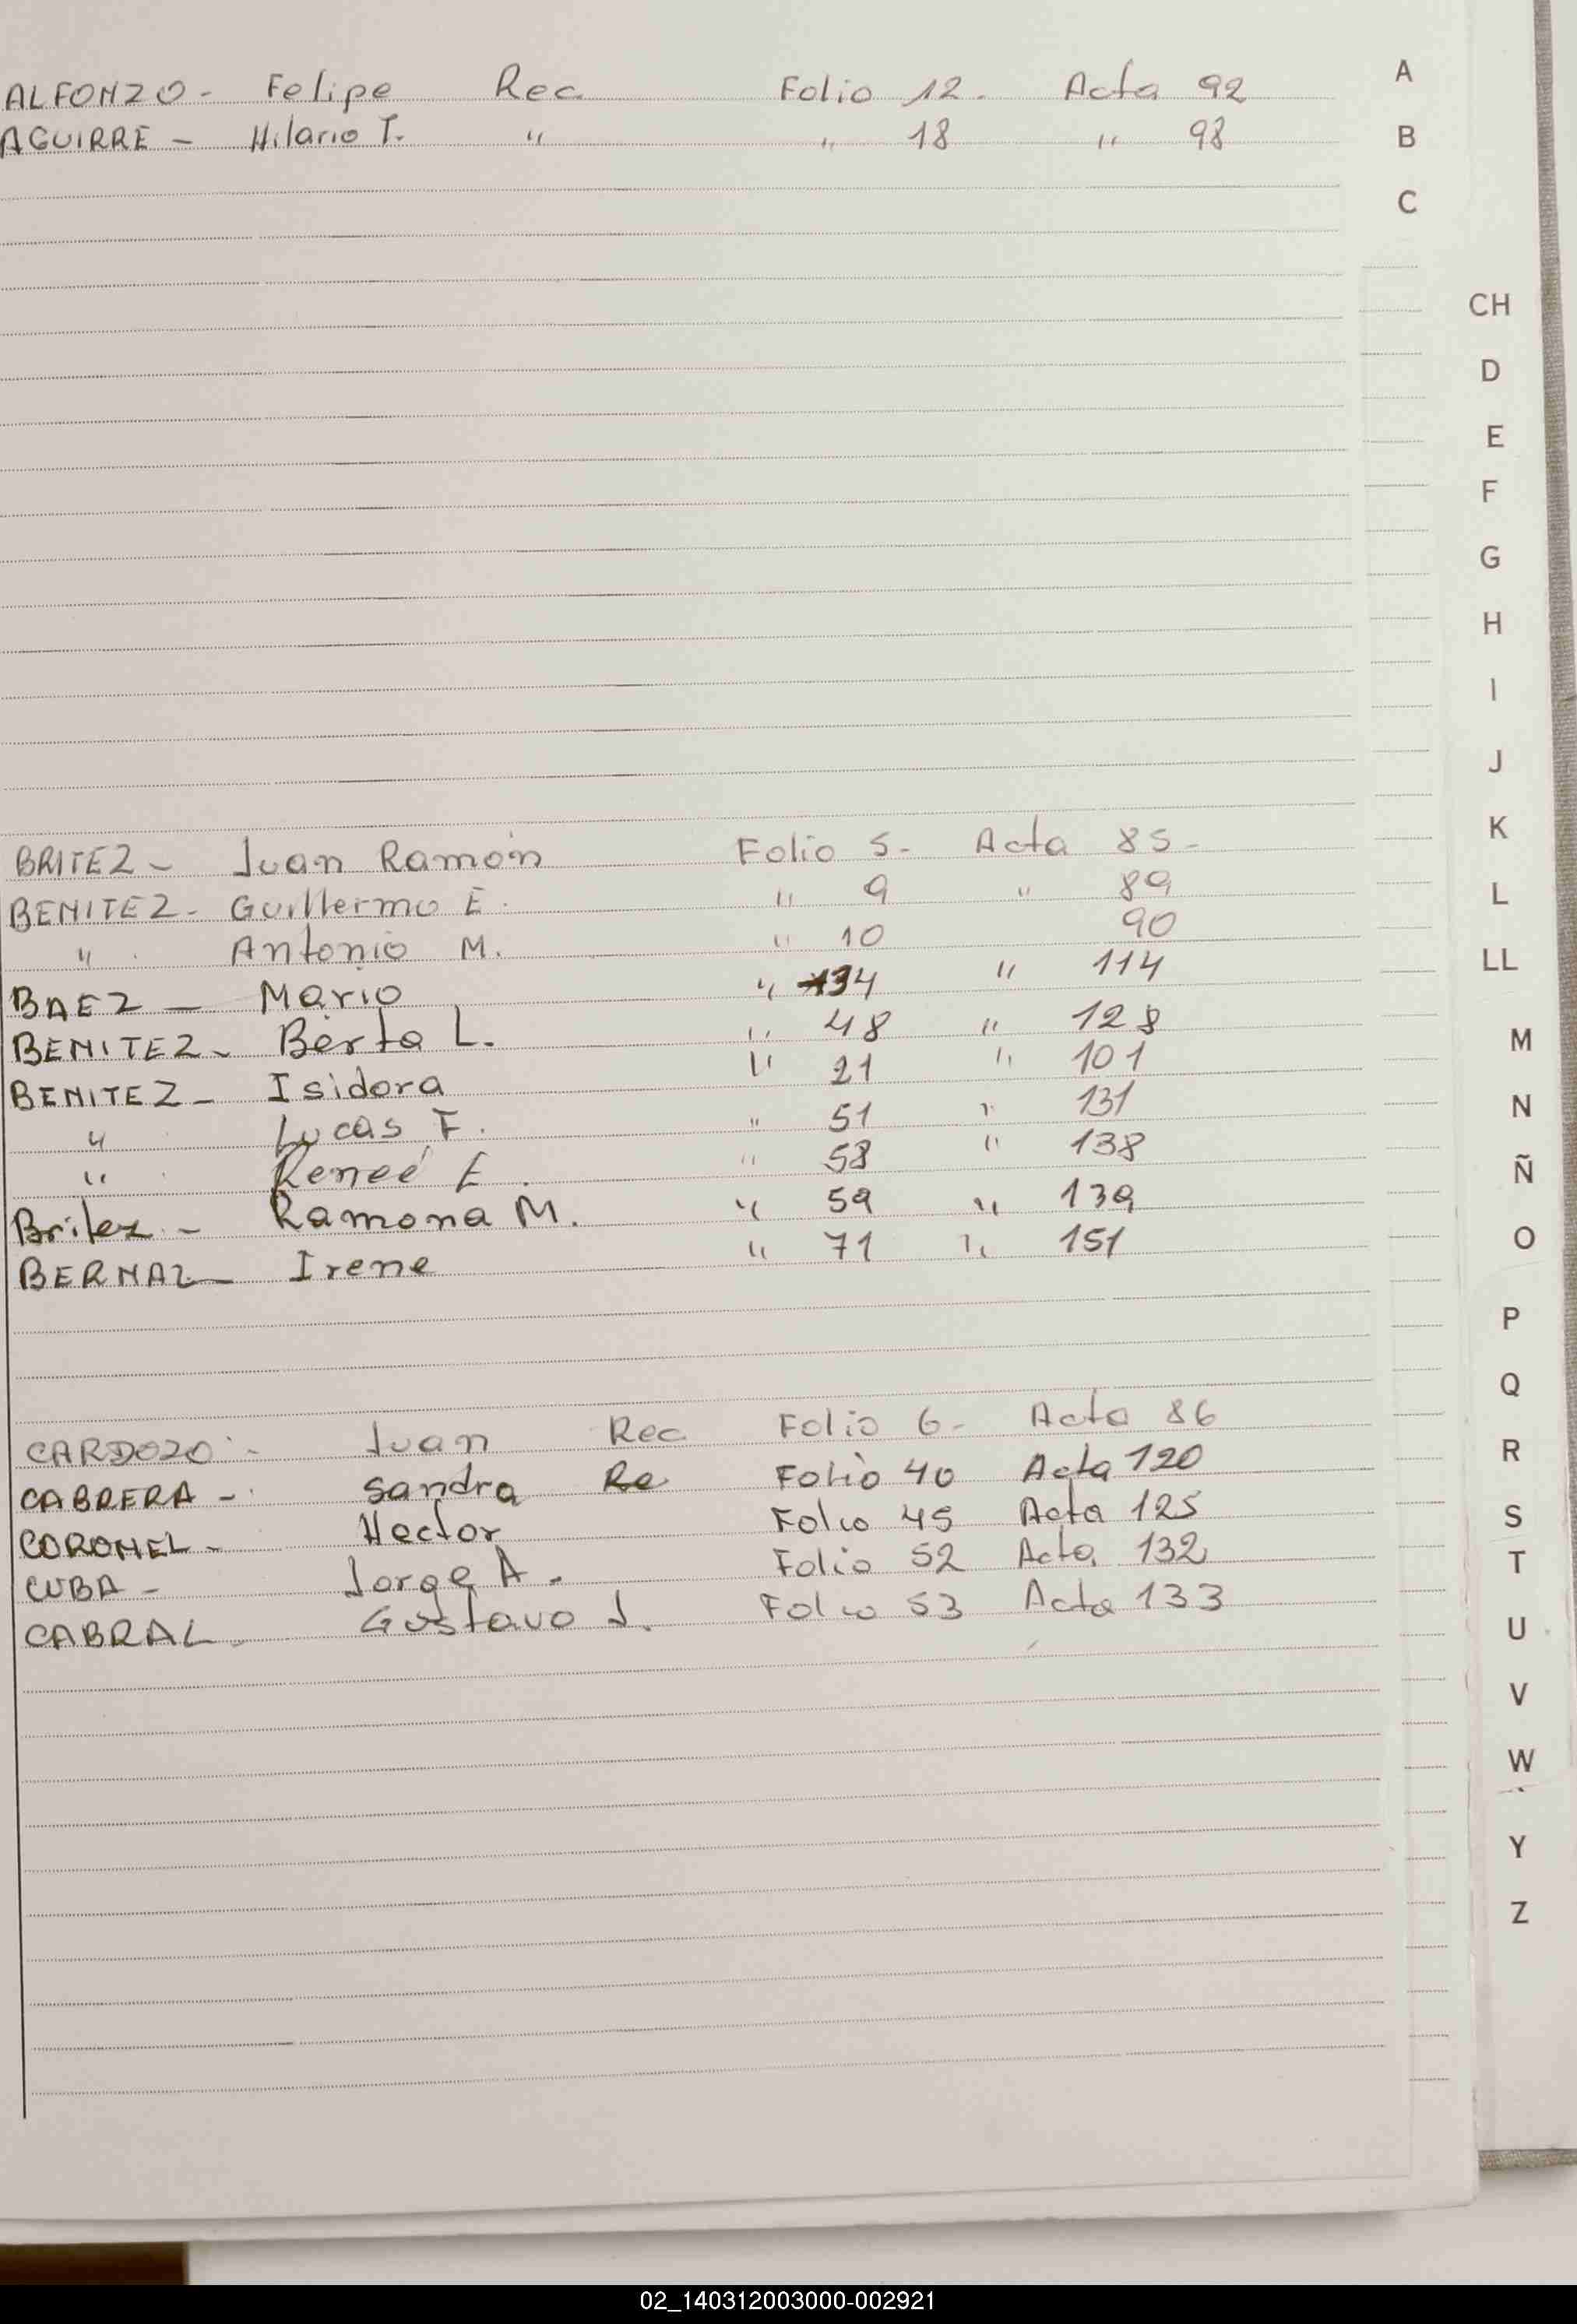 ALFONZO - Felipe Rec Folio 12. Acta 92
AGUIRRE - Hilario T. " " 18 " 98
BRITEZ - Juan Ramón Folio 5- Acta 85-
BENITEZ - Guillermo E. " 9 " 89
" Antonio M. " 10 90
BAEZ - Mario " 34 " 114
BENITEZ - Berta L. " 48 " 128
BENITEZ - Isidora " 21 " 101
" Lucas F. " 51 " 131
" Reneé E. " 58 " 138
Britez - Ramona M. " 59 " 139
BERNAL - Irene " 71 " 151
CARDOZO - Juan Rec Folio 6- Acta 86
CABRERA - Sandra Re Folio 40 Acta 120
CORONEL - Hector Folio 45 Acta 125
CUBA - Jorge A. Folio 52 Acta 132
CABRAL - Gustavo J. Folio 53 Acta 133
A
B
C
CH
D
E
F
G
H
I
J
K
L
LL
M
N
Ñ
O
P
Q
R
S
T
U
V
W
Y
Z
02_140312003000-002921